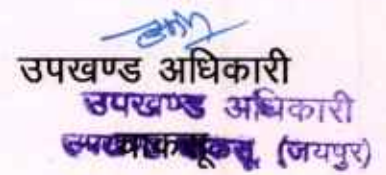 उपखण्ड अधिकारी
उपखण्ड अधिकारी
(जयपुर)